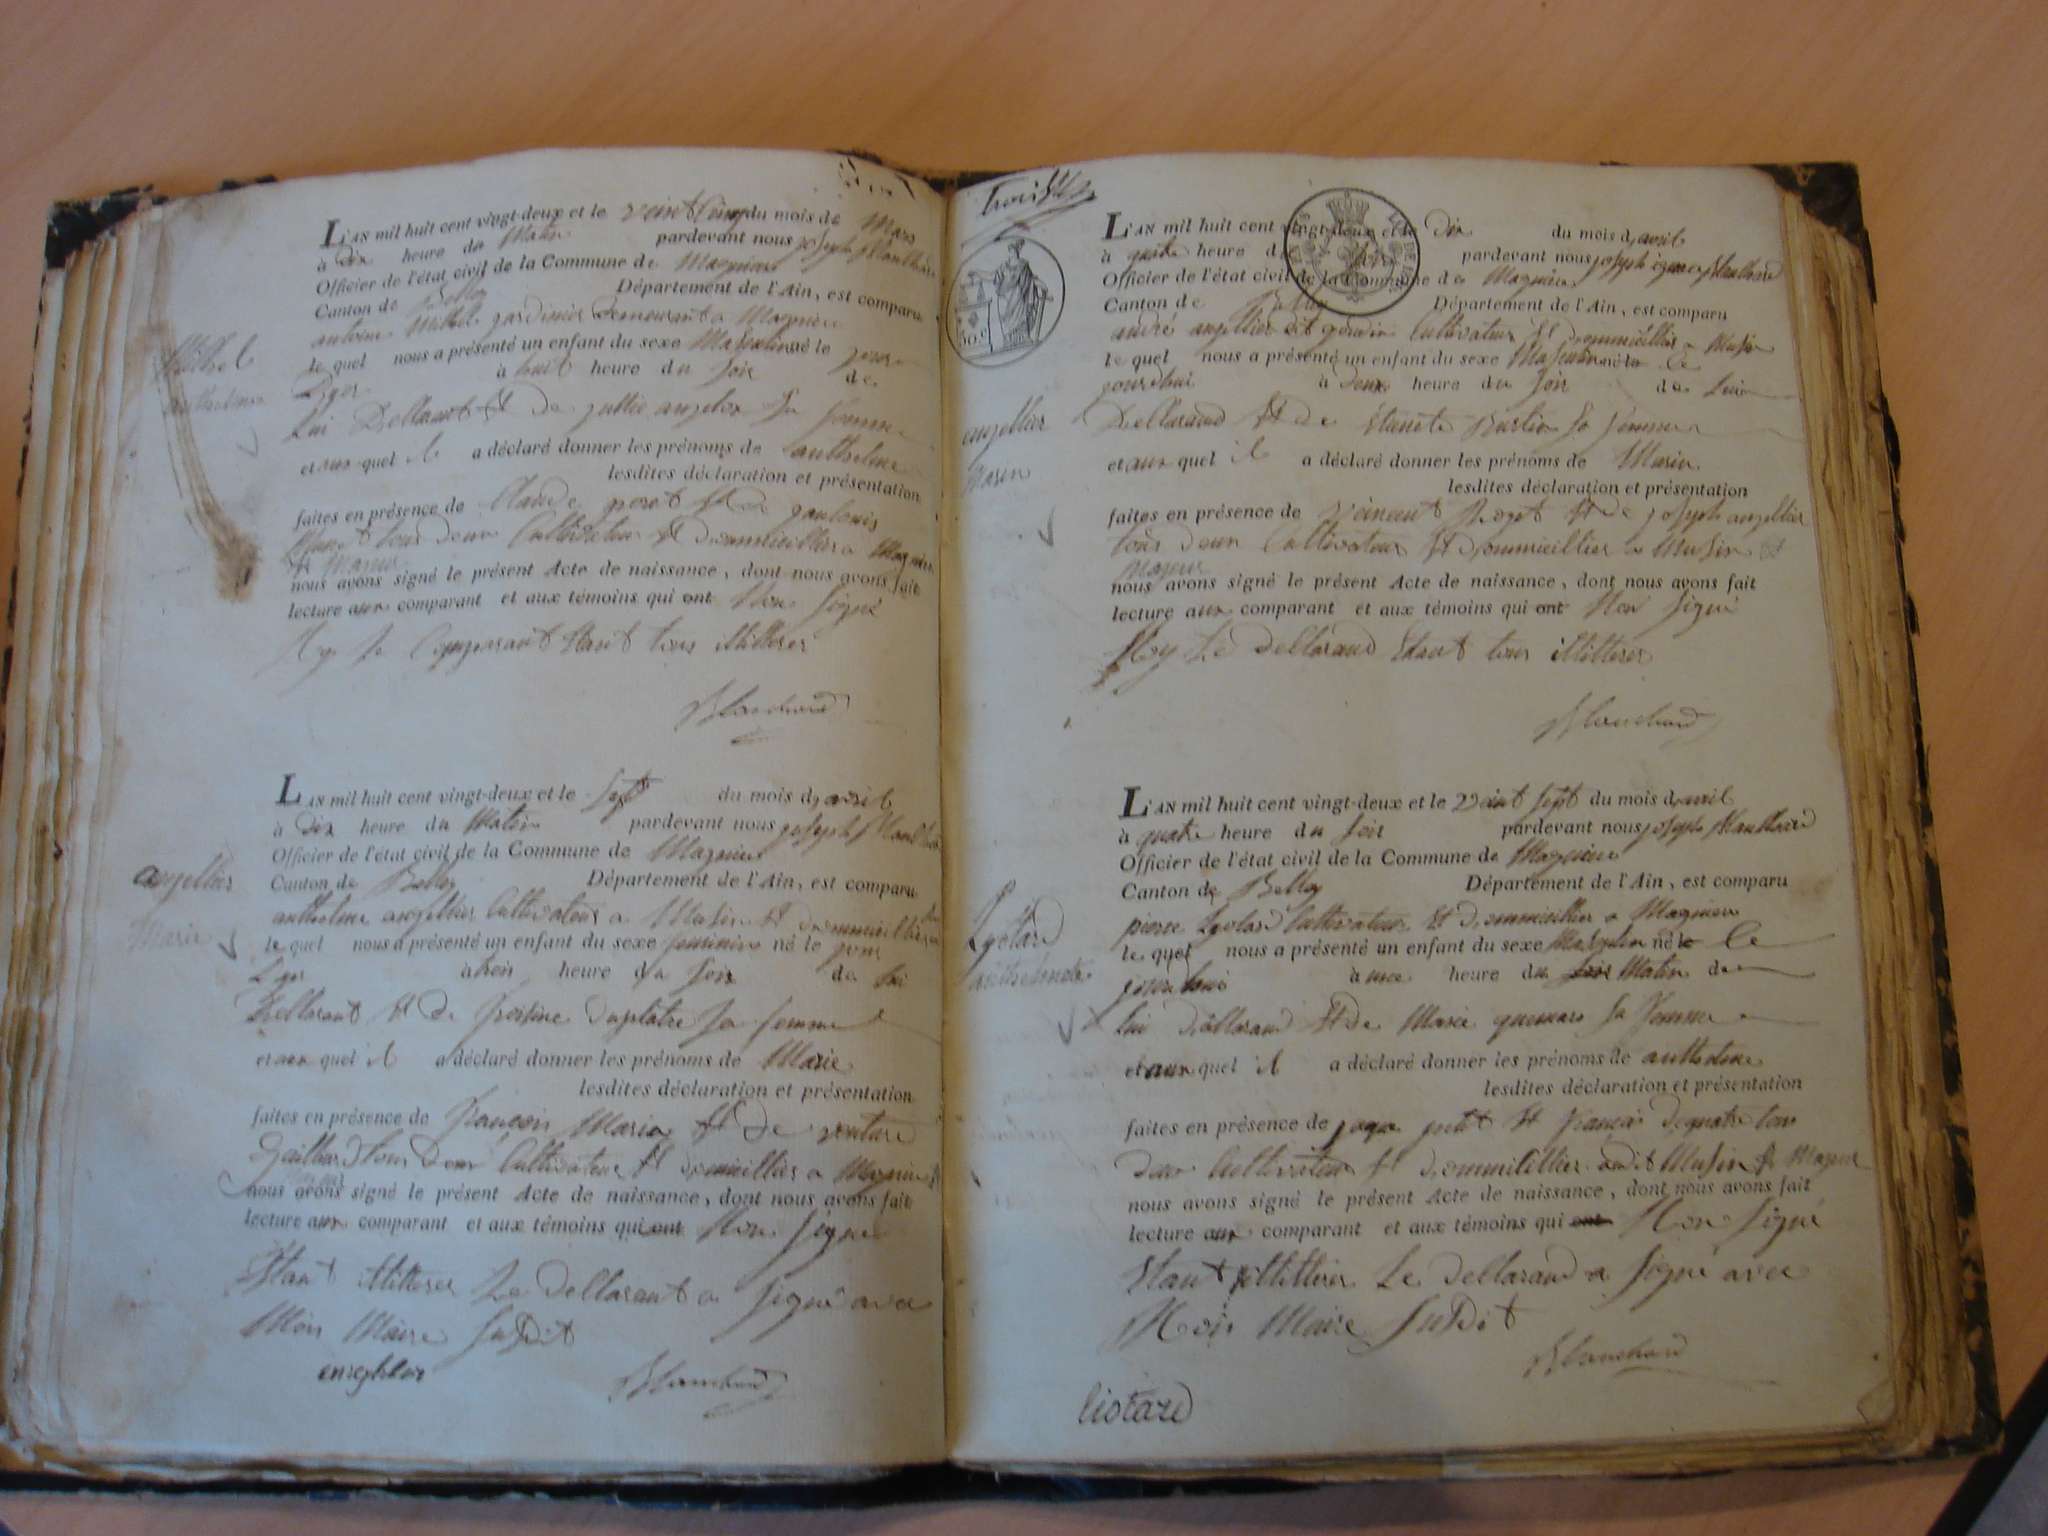 L'AN mil huit cent vingt-deux et le veint Cinq du mois de Mars
à dix heure du Matin pardevant nous joseph
Officier de l'état civil de la Commune de Magnieu
Canton de Belley Département de l'Ain, est comparu
antoine Millet jardinier demeurant a Magnieu
le quel nous a présenté un enfant du sexe Masculin né le jour
D'yer à huit heure du Soir de
Lui Dellarant Et de jullie Sa femme
et aux quel il a déclaré donner les prénoms de anthelme
lesdites déclaration et présentation
faites en présence de Claude peret Et de
tous deux Cultivateur Et dommicillier a Magnieu
Et Majeur
nous avons signé le présent Acte de naissance, dont nous avons fait
lecture aux comparant et aux témoins qui ont Non Signé
Ny le Comparant Etant tous illitteres
Blanchard
Millet
anthelme
L'AN mil huit cent vingt-deux et le Sept du mois d'avril
à dix heure du Matin pardevant nous joseph
Officier de l'état civil de la Commune de Magnieu
Canton de Belley Département de l'Ain, est comparu
anthelme anjellier Cultivateur a Musin Et dommicillier
le quel nous a présenté un enfant du sexe feminin né le jour
D'yer à trois heure du Soir de Lui
Dellarant Et de Sa femme
et aux quel il a déclaré donner les prénoms de Marie
lesdites déclaration et présentation
faites en présence de françois Et de
tous deux Cultivateur Et dommicillier a Magnieu
nous avons signé le présent Acte de naissance, dont nous avons fait
lecture aux comparant et aux témoins qui ont Non Signé
Etant illitteres Le Dellarant a Signé avec
Moi Maire Sudit
Blanchard
anjellier
Marie
50.C
L'AN mil huit cent vingt-deux et le Dix du mois d'avril
à quatre heure du Soir pardevant nous joseph
Officier de l'état civil de la Commune de Magnieu
Canton de Belley Département de l'Ain, est comparu
andré anjellier dit Cultivateur Et dommicillier a Musin
le quel nous a présenté un enfant du sexe Masculin né le
jourdhui à deux heure du Soir de Lui
Dellarand Et de Sa femme
et aux quel il a déclaré donner les prénoms de Marin
lesdites déclaration et présentation
faites en présence de veincent Roget Et de joseph anjellier
tous deux Cultivateur Et dommicillier a Musin Et
Majeur
nous avons signé le présent Acte de naissance, dont nous avons fait
lecture aux comparant et aux témoins qui ont Non Signé
Ny Le Dellarand Etant tous illitteres
Blanchard
anjellier
Marin
L'AN mil huit cent vingt-deux et le Veint Sept du mois d'avril
à quatre heure du Soir pardevant nous joseph
Officier de l'état civil de la Commune de Magnieu
Canton de Belley Département de l'Ain, est comparu
pierre Lyotard Cultivateur Et dommicillier a Magnieu
le quel nous a présenté un enfant du sexe Masculin né le
jourdhui à une heure du Soir Matin de
Lui Dellarand Et de Marie Sa femme
et aux quel il a déclaré donner les prénoms de anthelme
lesdites déclaration et présentation
faites en présence de petit Et françois tous
deux Cultivateur Et dommicillier audit Musin Et Majeur
nous avons signé le présent Acte de naissance, dont nous avons fait
lecture aux comparant et aux témoins qui ont Non Signé
Etant illitteres Le Dellarand a Signé avec
Moi Maire Sudit
Blanchard
liotard
Lyotard